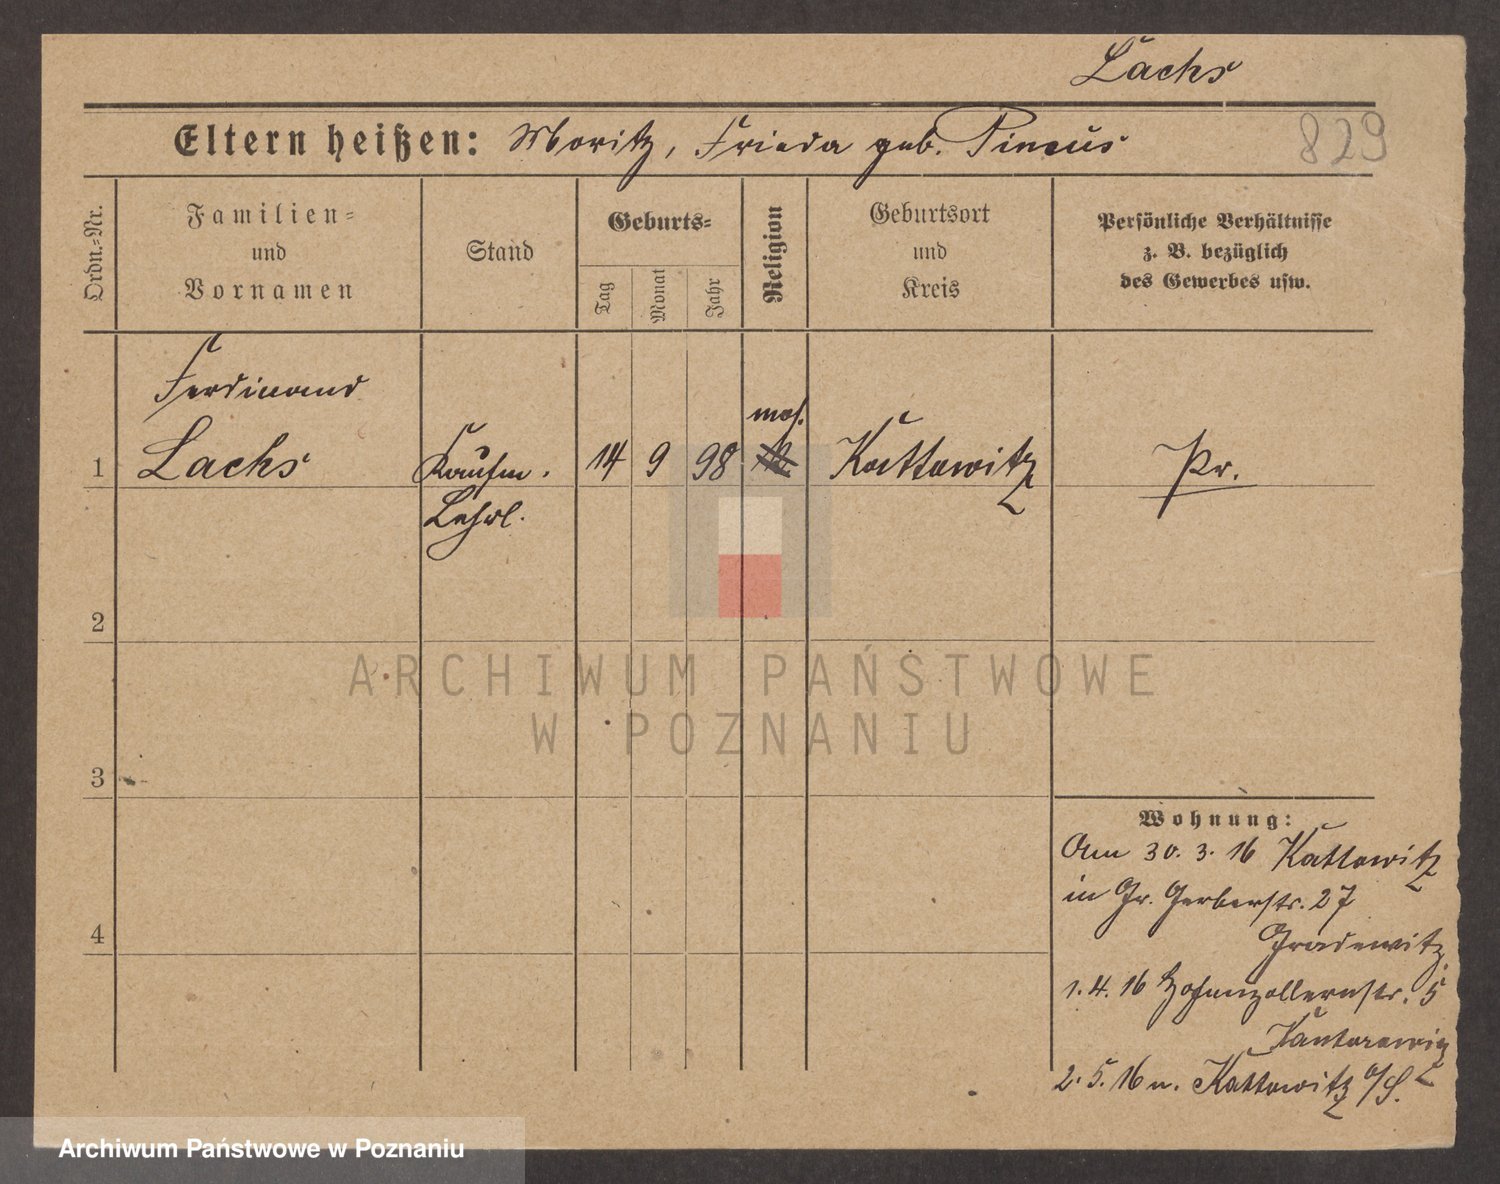 Lachs
Eltern heißen: Moritz, Frieda geb. Pincus
829
Ordn.=Nr.
Familien=
und
Vornamen
Stand
Geburts=
Tag
Monat
Jahr
Religion
Geburtsort
und
Kreis
Persönliche Verhältnisse
z. B. bezüglich
des Gewerbes usw.
Ferdinand
mos.
1 Lachs Kaufm. 14 9 98 Kattowitz Pr.
Lehrl.
2
3
4
Wohnung:
Am 30. 3. 16 Kattowitz
in Gr. Gerberstr. 27
Gradewitz
1. 4. 16 Hohenzollernstr. 5
Kantorowicz
2. 5. 16 n. Kattowitz O/S.
ARCHIWUM PAŃSTWOWE
W POZNANIU
Archiwum Państwowe w Poznaniu